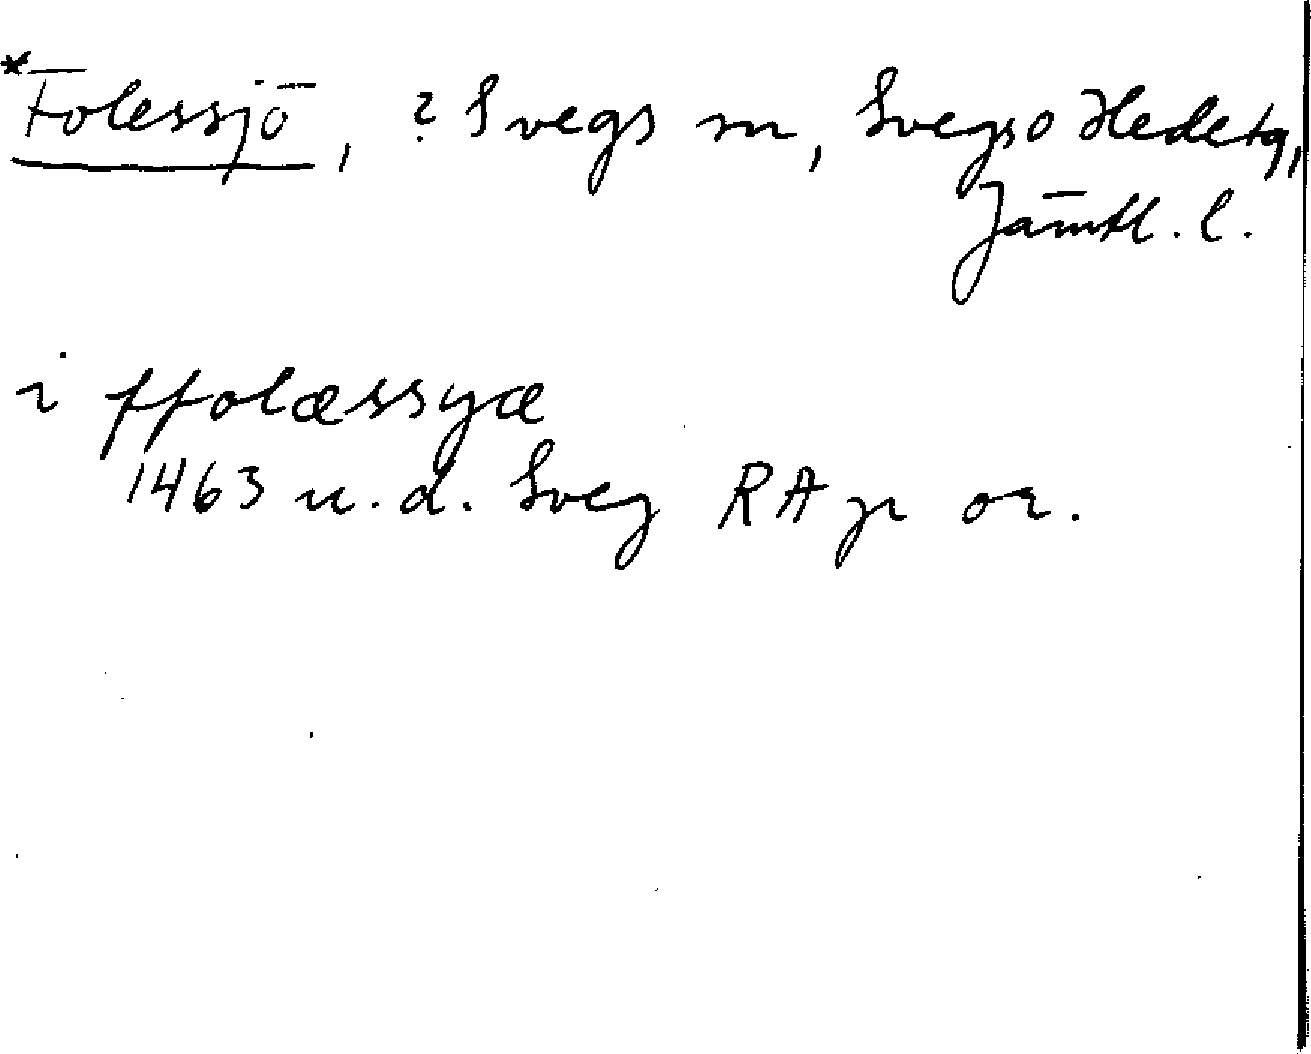 *Folessjö, ? Svegs sn, Svegs o Hede tg,
Jämtl. l.
i ffolæssyæ
1463 u.d. Sveg RA p or.